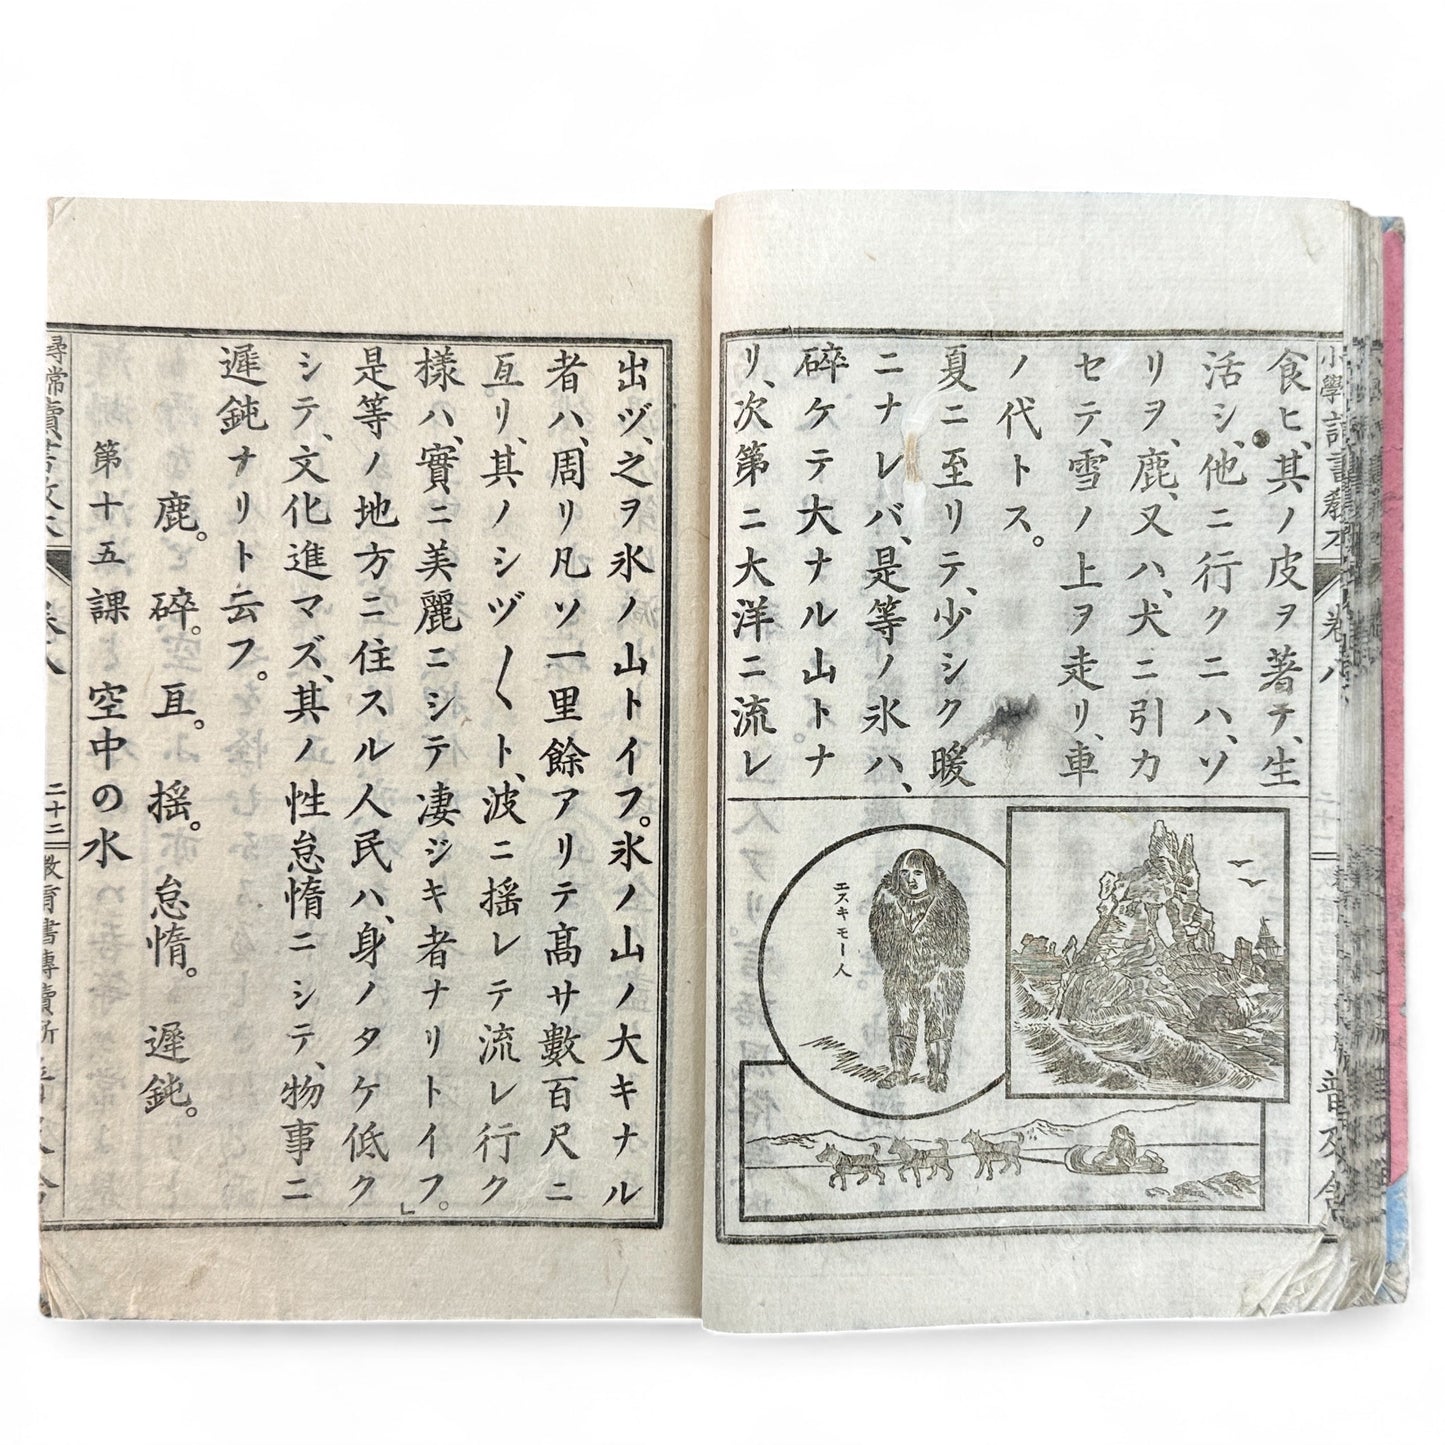 食ヒ、其ノ皮ヲ著テ、生
活シ、他ニ行クニハ、ソ
リヲ、鹿、又ハ、犬ニ引カ
セテ、雪ノ上ヲ走リ、車
ノ代トス。
夏ニ至リテ、少シク暖
ニナレバ、是等ノ氷ハ、
碎ケテ大ナル山トナ
リ、次第ニ大洋ニ流レ
エスキモー人
出ヅ、之ヲ氷ノ山トイフ。氷ノ山ノ大キナル
者ハ、周リ凡ソ一里餘アリテ高サ數百尺ニ
亙リ、其ノシヅ〳〵ト、波ニ搖レテ流レ行ク
樣ハ、實ニ美麗ニシテ凄ジキ者ナリトイフ。」
是等ノ地方ニ住スル人民ハ、身ノタケ低ク
シテ、文化進マズ、其ノ性怠惰ニシテ、物事ニ
遲鈍ナリト云フ。
鹿。碎。亙。搖。怠惰。遲鈍。
第十五課 空中の水
二十二 教育書專賣所